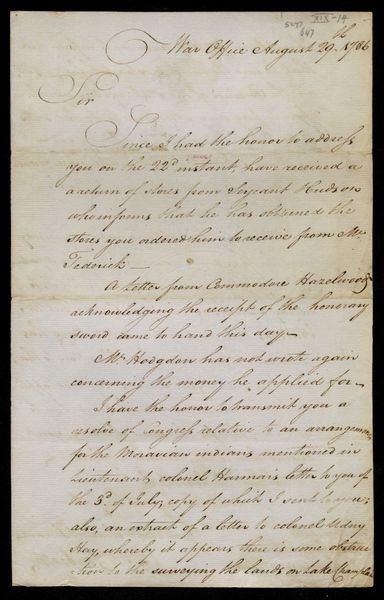 XIX-14
5277
647
War Office August 29th 1786
Sir
Since I had the honor to address
you on the 22d instant, have received a
a return of stores from Serjeant Hudson
who informs that he has obtained the
stores you ordered him to receive from Mr
Federick—
A Letter from Commodore Hazelwood
acknowledging the receipt of the honorary
sword came to hand this day—
Mr Hodgdon has not wrote again
concerning the money he applied for—
I have the honor to transmit you a
resolve of Congress relative to an arrangement
for the Moravian indians mentioned in
Lieutenant colonel Harmar's letter to you of
the 3d of July, copy of which I sent to you;
also, an extract of a letter to colonel Udny
Hay, whereby it appears there is some obstruc
tion to the surveying the lands on Lake Champlain